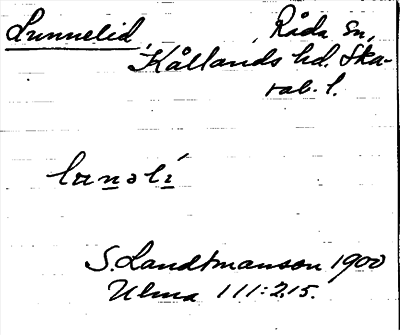 Lunnelid, Råda sn,
Kållands hd. Ska-
rab. l.
S. Landtmanson 1900
Ulma 111:215.